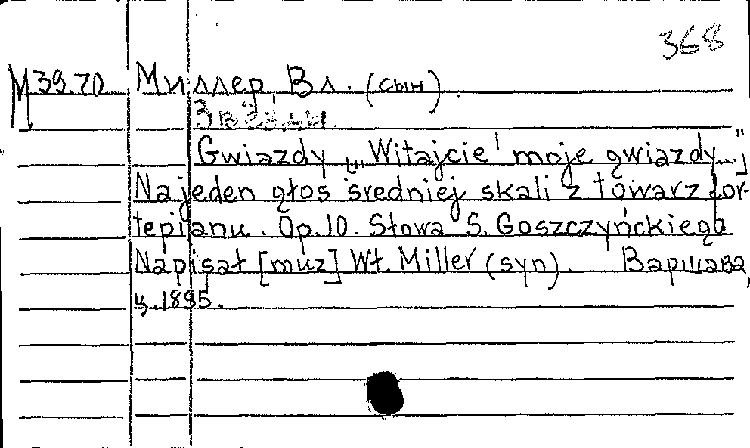 368
М 39.70 Миллер, Вл. (сын).
Звёзды.
Gwiazdy [„Witajcie moje gwiazdy..."]
Na jeden głos średniej skali z towarz. for-
tepianu. Op. 10. Słowa S. Goszczyńckiego
Napisał [muz] Wł. Miller (syn). Варшава,
ц. 1895.